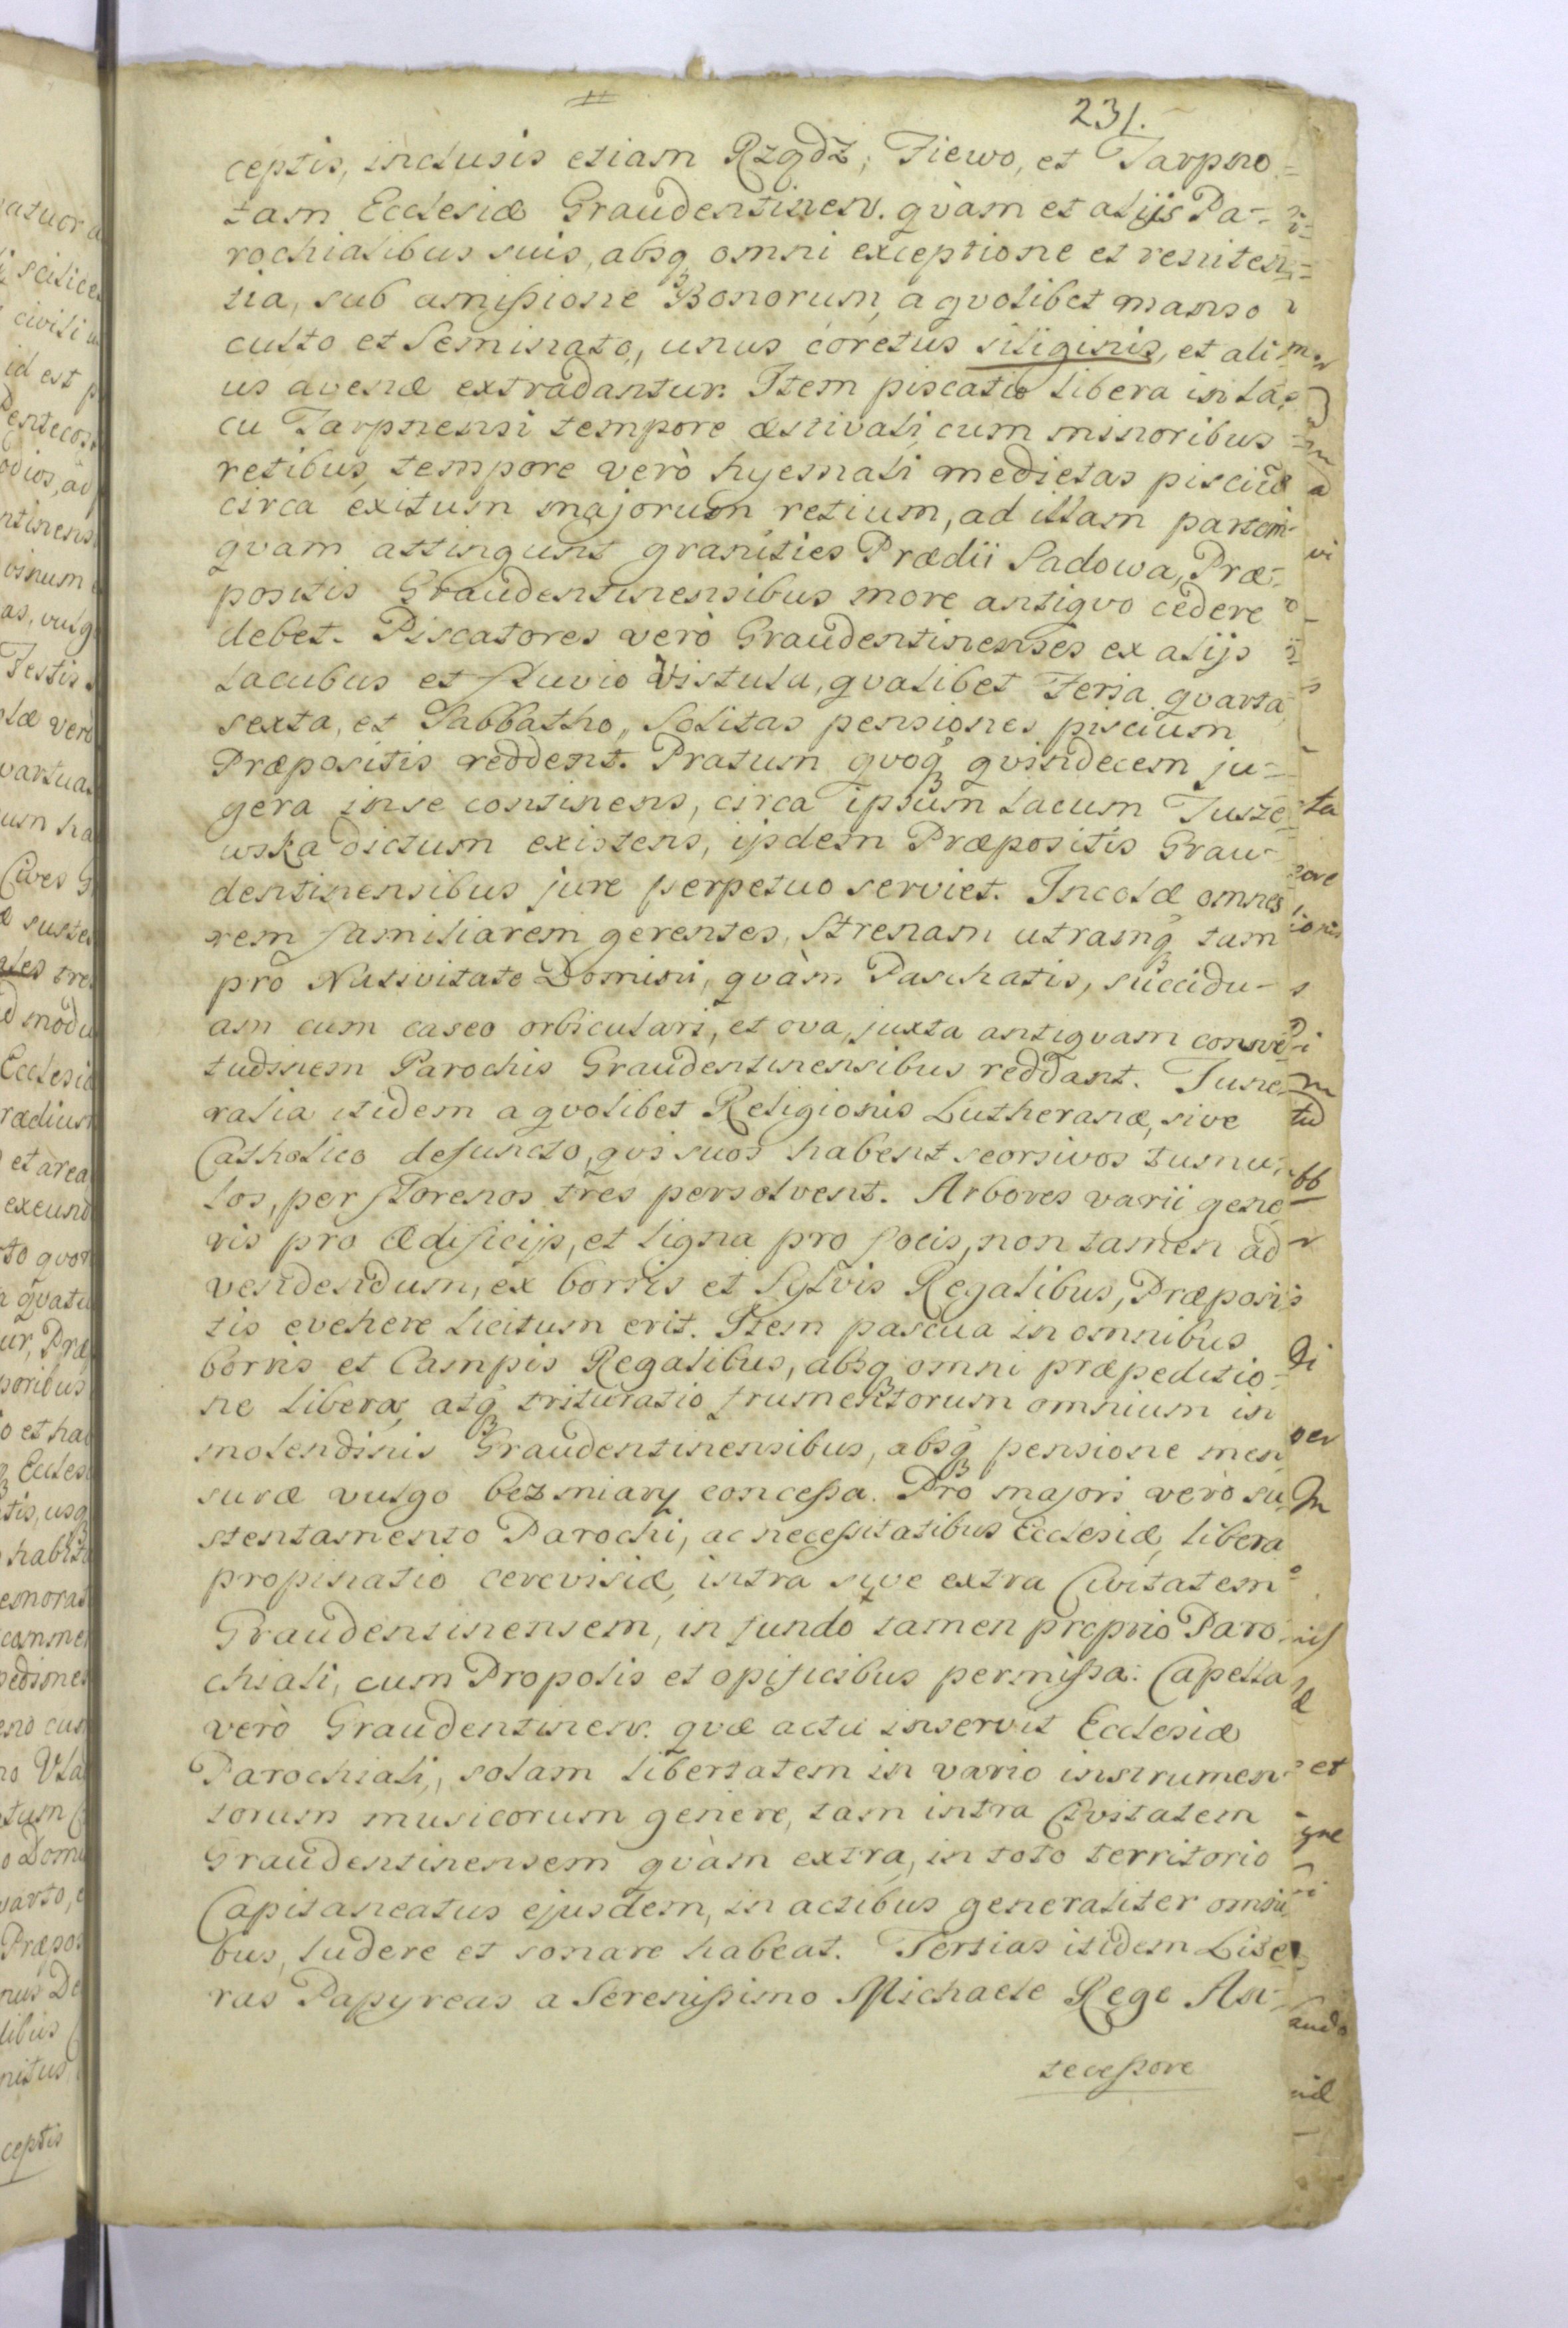 231.
ceptis, inclusis etiam Rządz, Fiewo, et Tarpno
tam Ecclesiæ Graudentinen. qvàm et alijs Pa-
rochialibus suis, absq, omni exceptione et reniten-
tia, sub amissione Bonorum, a qvolibet manso
culto et Seminato, unus coretus siliginis, et ali
us avenæ extradantur. Item piscatio libera in la-
cu Tarpnensi tempore æstivali, cum minoribus
retibus, tempore verò hyemali medietas pisciũ
circa exitum majorum retium, ad illam partem
qvam attingunt granities Prædii Sadowa, Præ-
positis Graudentinensibus more antiqvo cedere
debet. Piscatores verò Graudentinenses ex alijs
Lacubus et fluvio Vistula, qvalibet Feria qvarta,
sexta, et Sabbatho, Solitas pensiones piscium
Præpositis reddent. Pratum qvoq, qvindecem ju-
gera in se continens, circa ipsum lacum Tusze-
wska dictum existens, ijsdem Præpositis Grau-
dentinensibus jure perpetuo serviet. Incolæ omnes
rem familiarem gerentes, Strenam utramq, tam
pro Nativitate Domini, qvàm Paschatis, succidu-
am cum caseo orbiculari, et ova, juxta antiqvam consve-
tudinem Parochis Graudentinensibus reddant. Fune-
ralia itidem a qvolibet Religionis Lutheranæ, sive
Catholico defuncto, qvi suos habent seorsivos tumu-
los, per florenos tres persolvent. Arbores varii gene
ris pro ædificijs, et ligna pro focis, non tamen ad
vendendum, ex borris et Sylvis Regalibus, Præposi
tis evehere licitum erit. Item pascua in omnibus
borris et Campis Regalibus, absq, omni præpeditio-
ne libera, atq, trituratio frumentorum omnium in
molendinis Graudentinensibus, absq, pensione men
suræ vulgo bez miary concessa. Pro majori verò su
stentamento Parochi, ac necessitatibus Ecclesiæ, libera
propinatio cerevisiæ, intra sive extra Civitatem
Graudentinensem, in fundo tamen proprio Paro-
chiali, cum Propolis et opificibus permissa. Capella
verò Graudentinen. qvæ actu inservit Ecclesiæ
Parochiali, solam libertatem in vario instrumen-
torum musicorum genere, tam intra Civitatem
Graudentinensem qvàm extra, in toto territorio
Capitaneatus ejusdem, in actibus generaliter omni
bus, ludere et sonare habeat. Tertias itidem Lite
ras Papyreas a Serenissimo Michaele Rege An-
tecessore